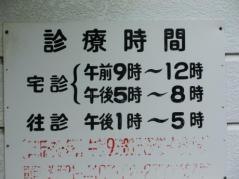 診療時間
宅診 午前9時～12時
午後5時～8時
往診 午後1時～5時